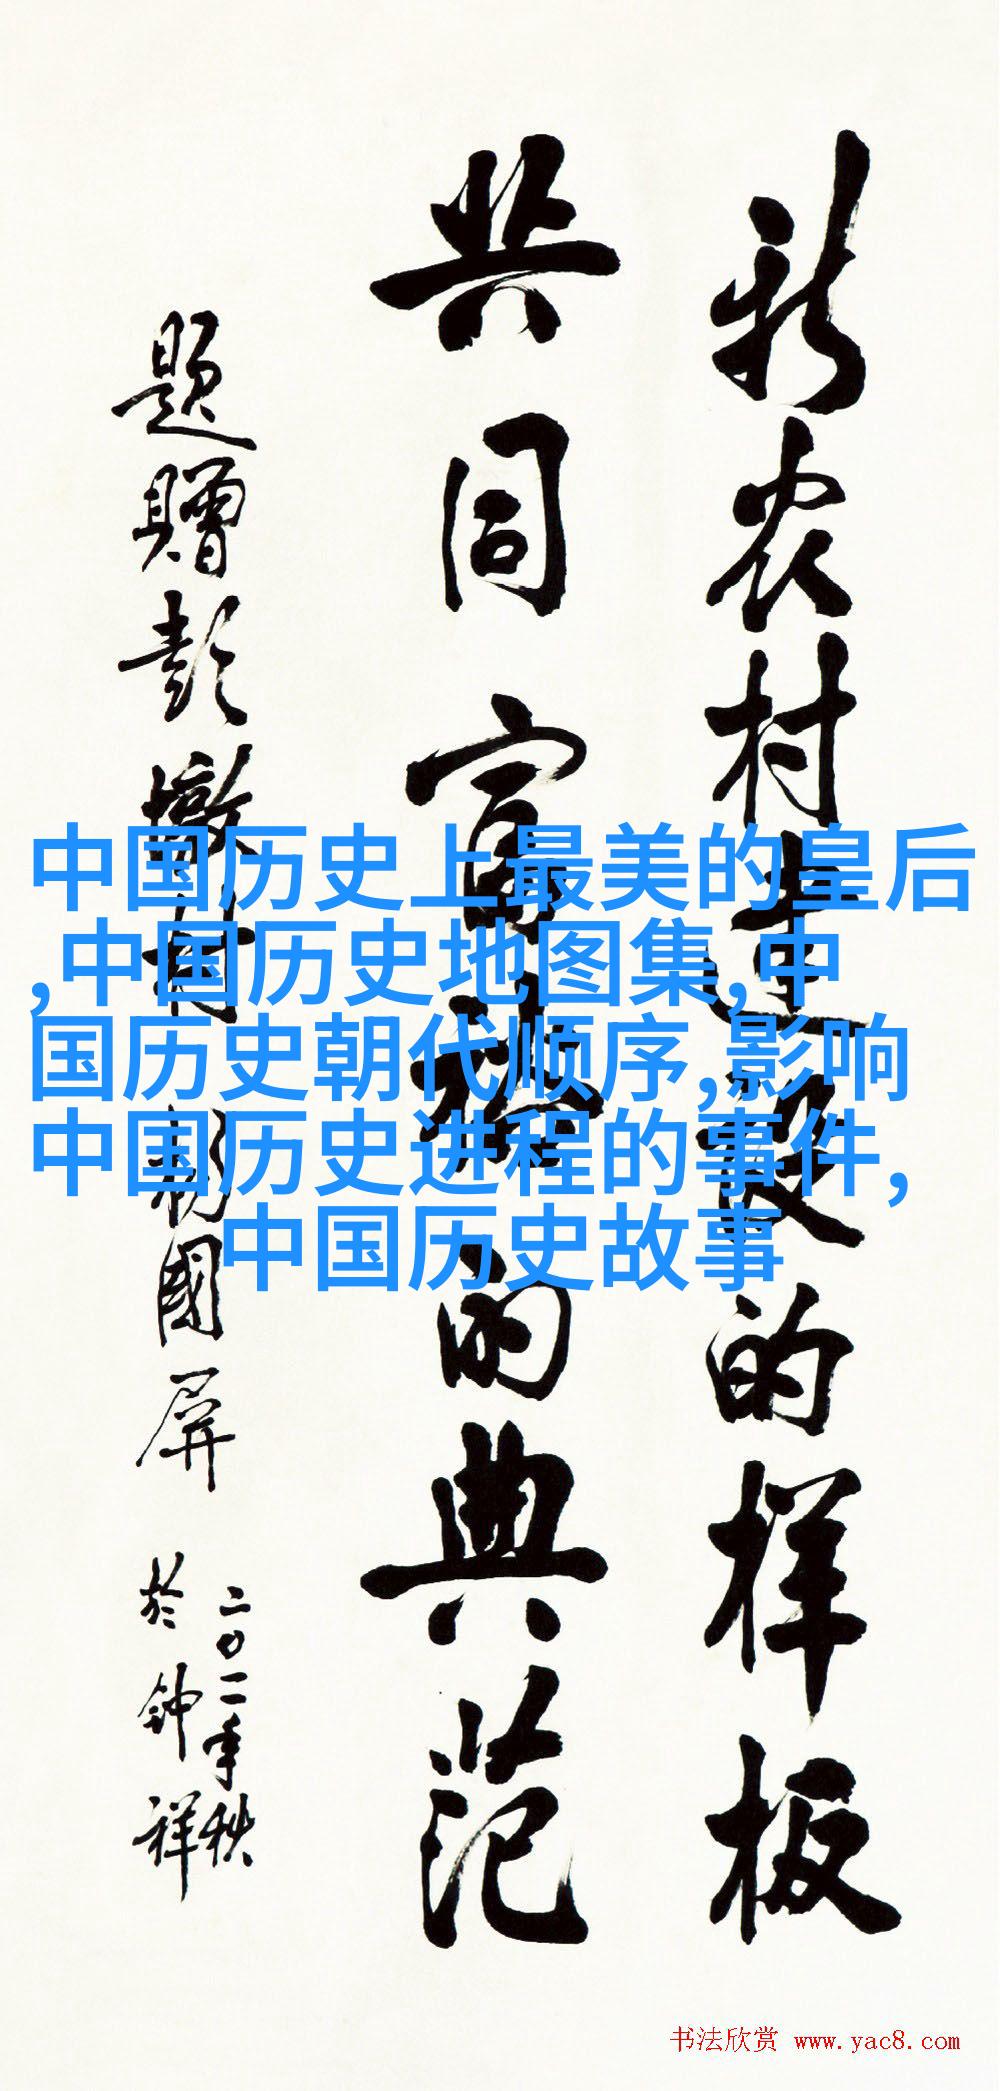 新农村建设的样板
共同富裕的典范
题赠彭墩村
彭國屏
二〇一一年秋
於钟祥
中国历史上最美的皇后
,中国历史地图集,中
国历史朝代顺序,影响
中国历史进程的事件,
中国历史故事
书法欣赏 www.yac8.com